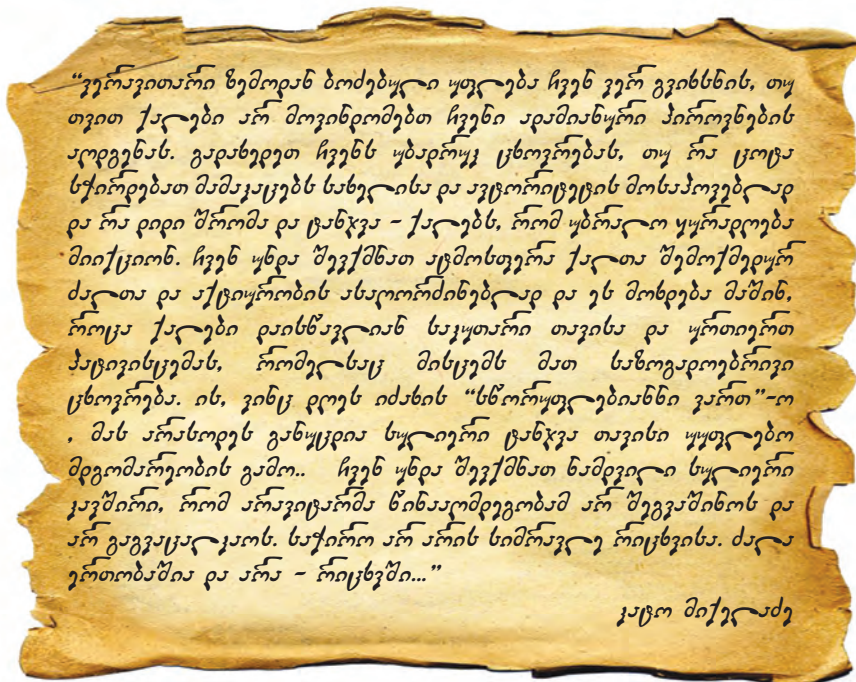 “ვერავითარი ზემოდან ბოძებული უფლება ჩვენ ვერ გვიხსნის, თუ
თვით ქალები არ მოვინდომებთ ჩვენი ადამიანური პიროვნების
აღდგენას. გადახედეთ ჩვენს უბადრუკ ცხოვრებას, თუ რა ცოტა
სჭირდებათ მამაკაცებს სახელისა და ავტორიტეტის მოსაპოვებლად
და რა დიდი შრომა და ტანჯვა - ქალებს, რომ უბრალო ყურადღება
მიიქციონ. ჩვენ უნდა შევქმნათ ატმოსფერა ქალთა შემოქმედურ
ძალთა და აქტიურობის ასაღორძინებლად და ეს მოხდება მაშინ,
როცა ქალები დაისწავლიან საკუთარი თავისა და ურთიერთ
პატივისცემას, რომელსაც მისცემს მათ საზოგადოებრივი
ცხოვრება. ის, ვინც დღეს იძახის “სწორუფლებიანნი ვართ”-ო
, მას არასოდეს განუცდია სულიერი ტანჯვა თავისი უუფლებო
მდგომარეობის გამო.. ჩვენ უნდა შევქმნათ ნამდვილი სულიერი
კავშირი, რომ არავიტარმა წინააღმდეგობამ არ შეგვაშინოს და
არ გაგვაცალკაოს. საჭირო არ არის სიმრავლე რიცხვისა. ძალა
ერთობაშია და არა - რიცხვში...”
კატო მიქელაძე